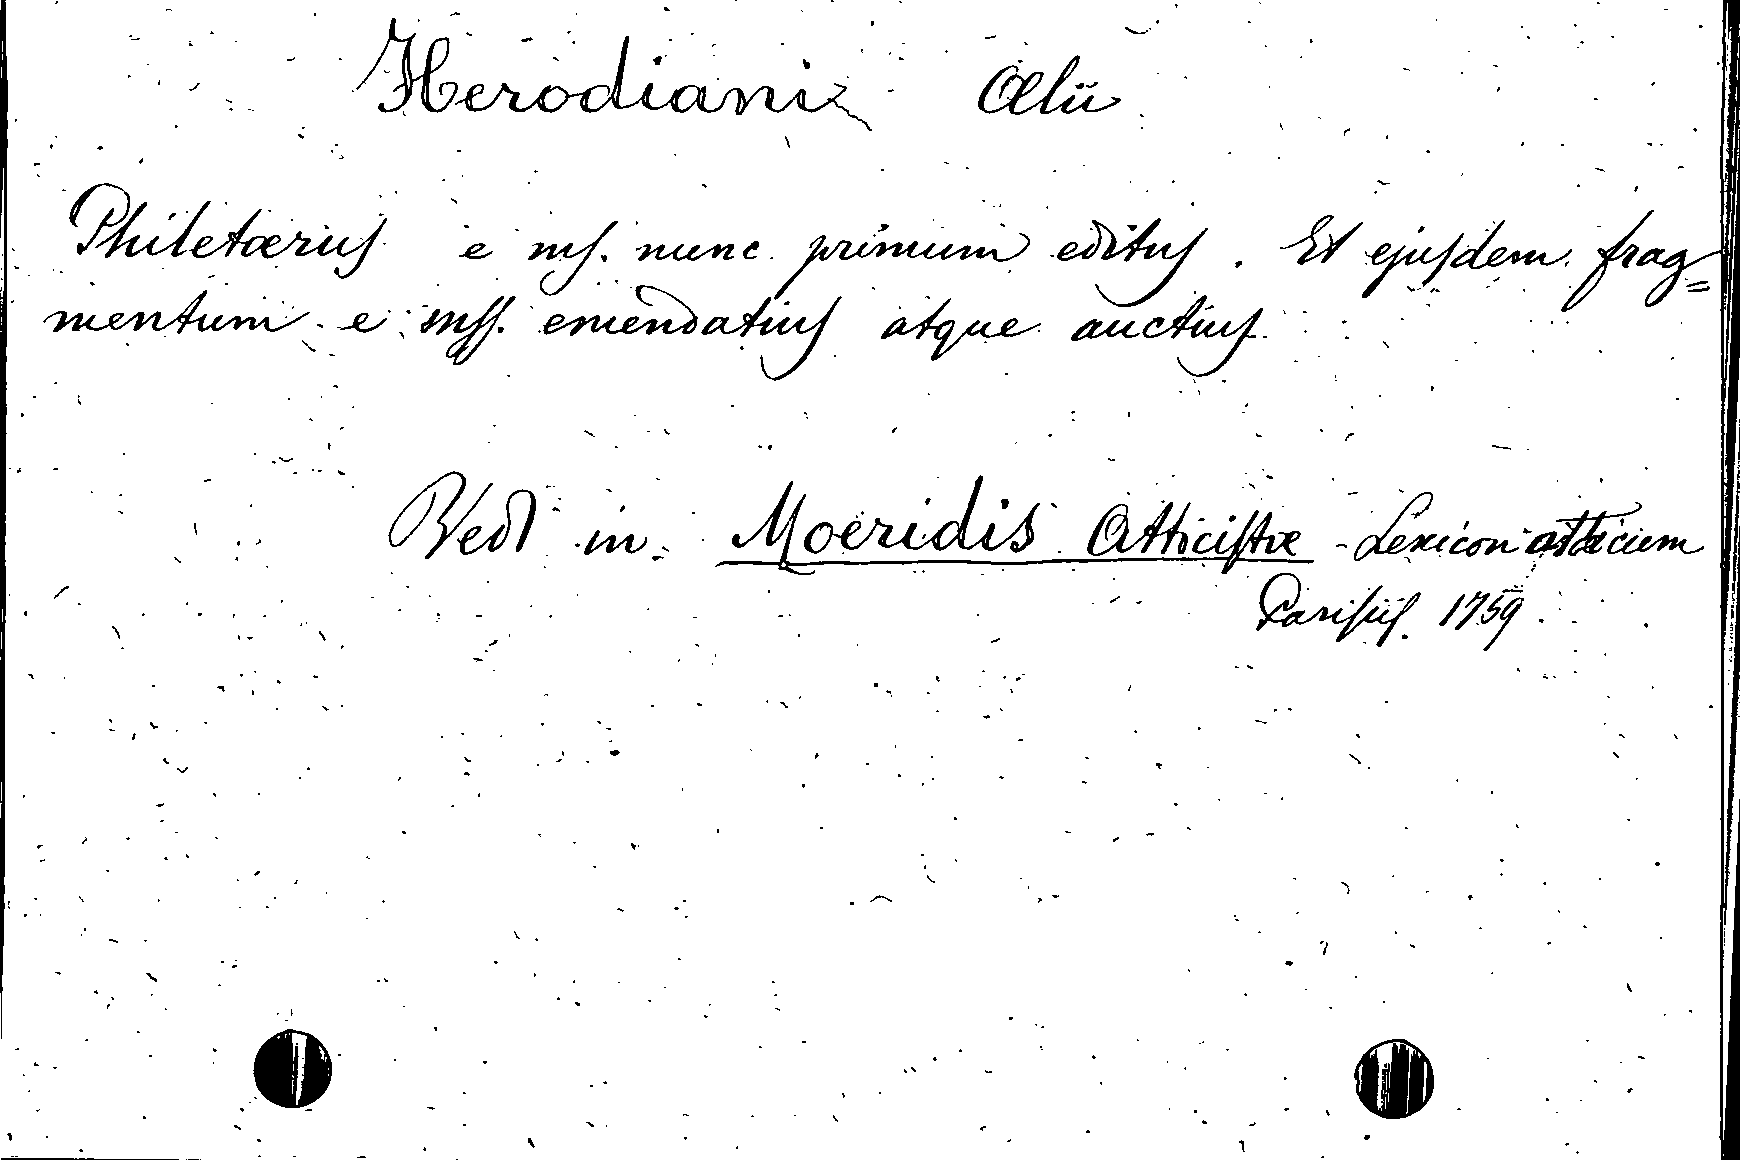 Herodiani Ælii
Philetærius e ms. nunc primum editus. Et ejusdem frag=
mentum e mss. emendatius atque auctius
Vedi in Moeridis Atticistæ - Lexicon atticum
Parisiis. 1759.